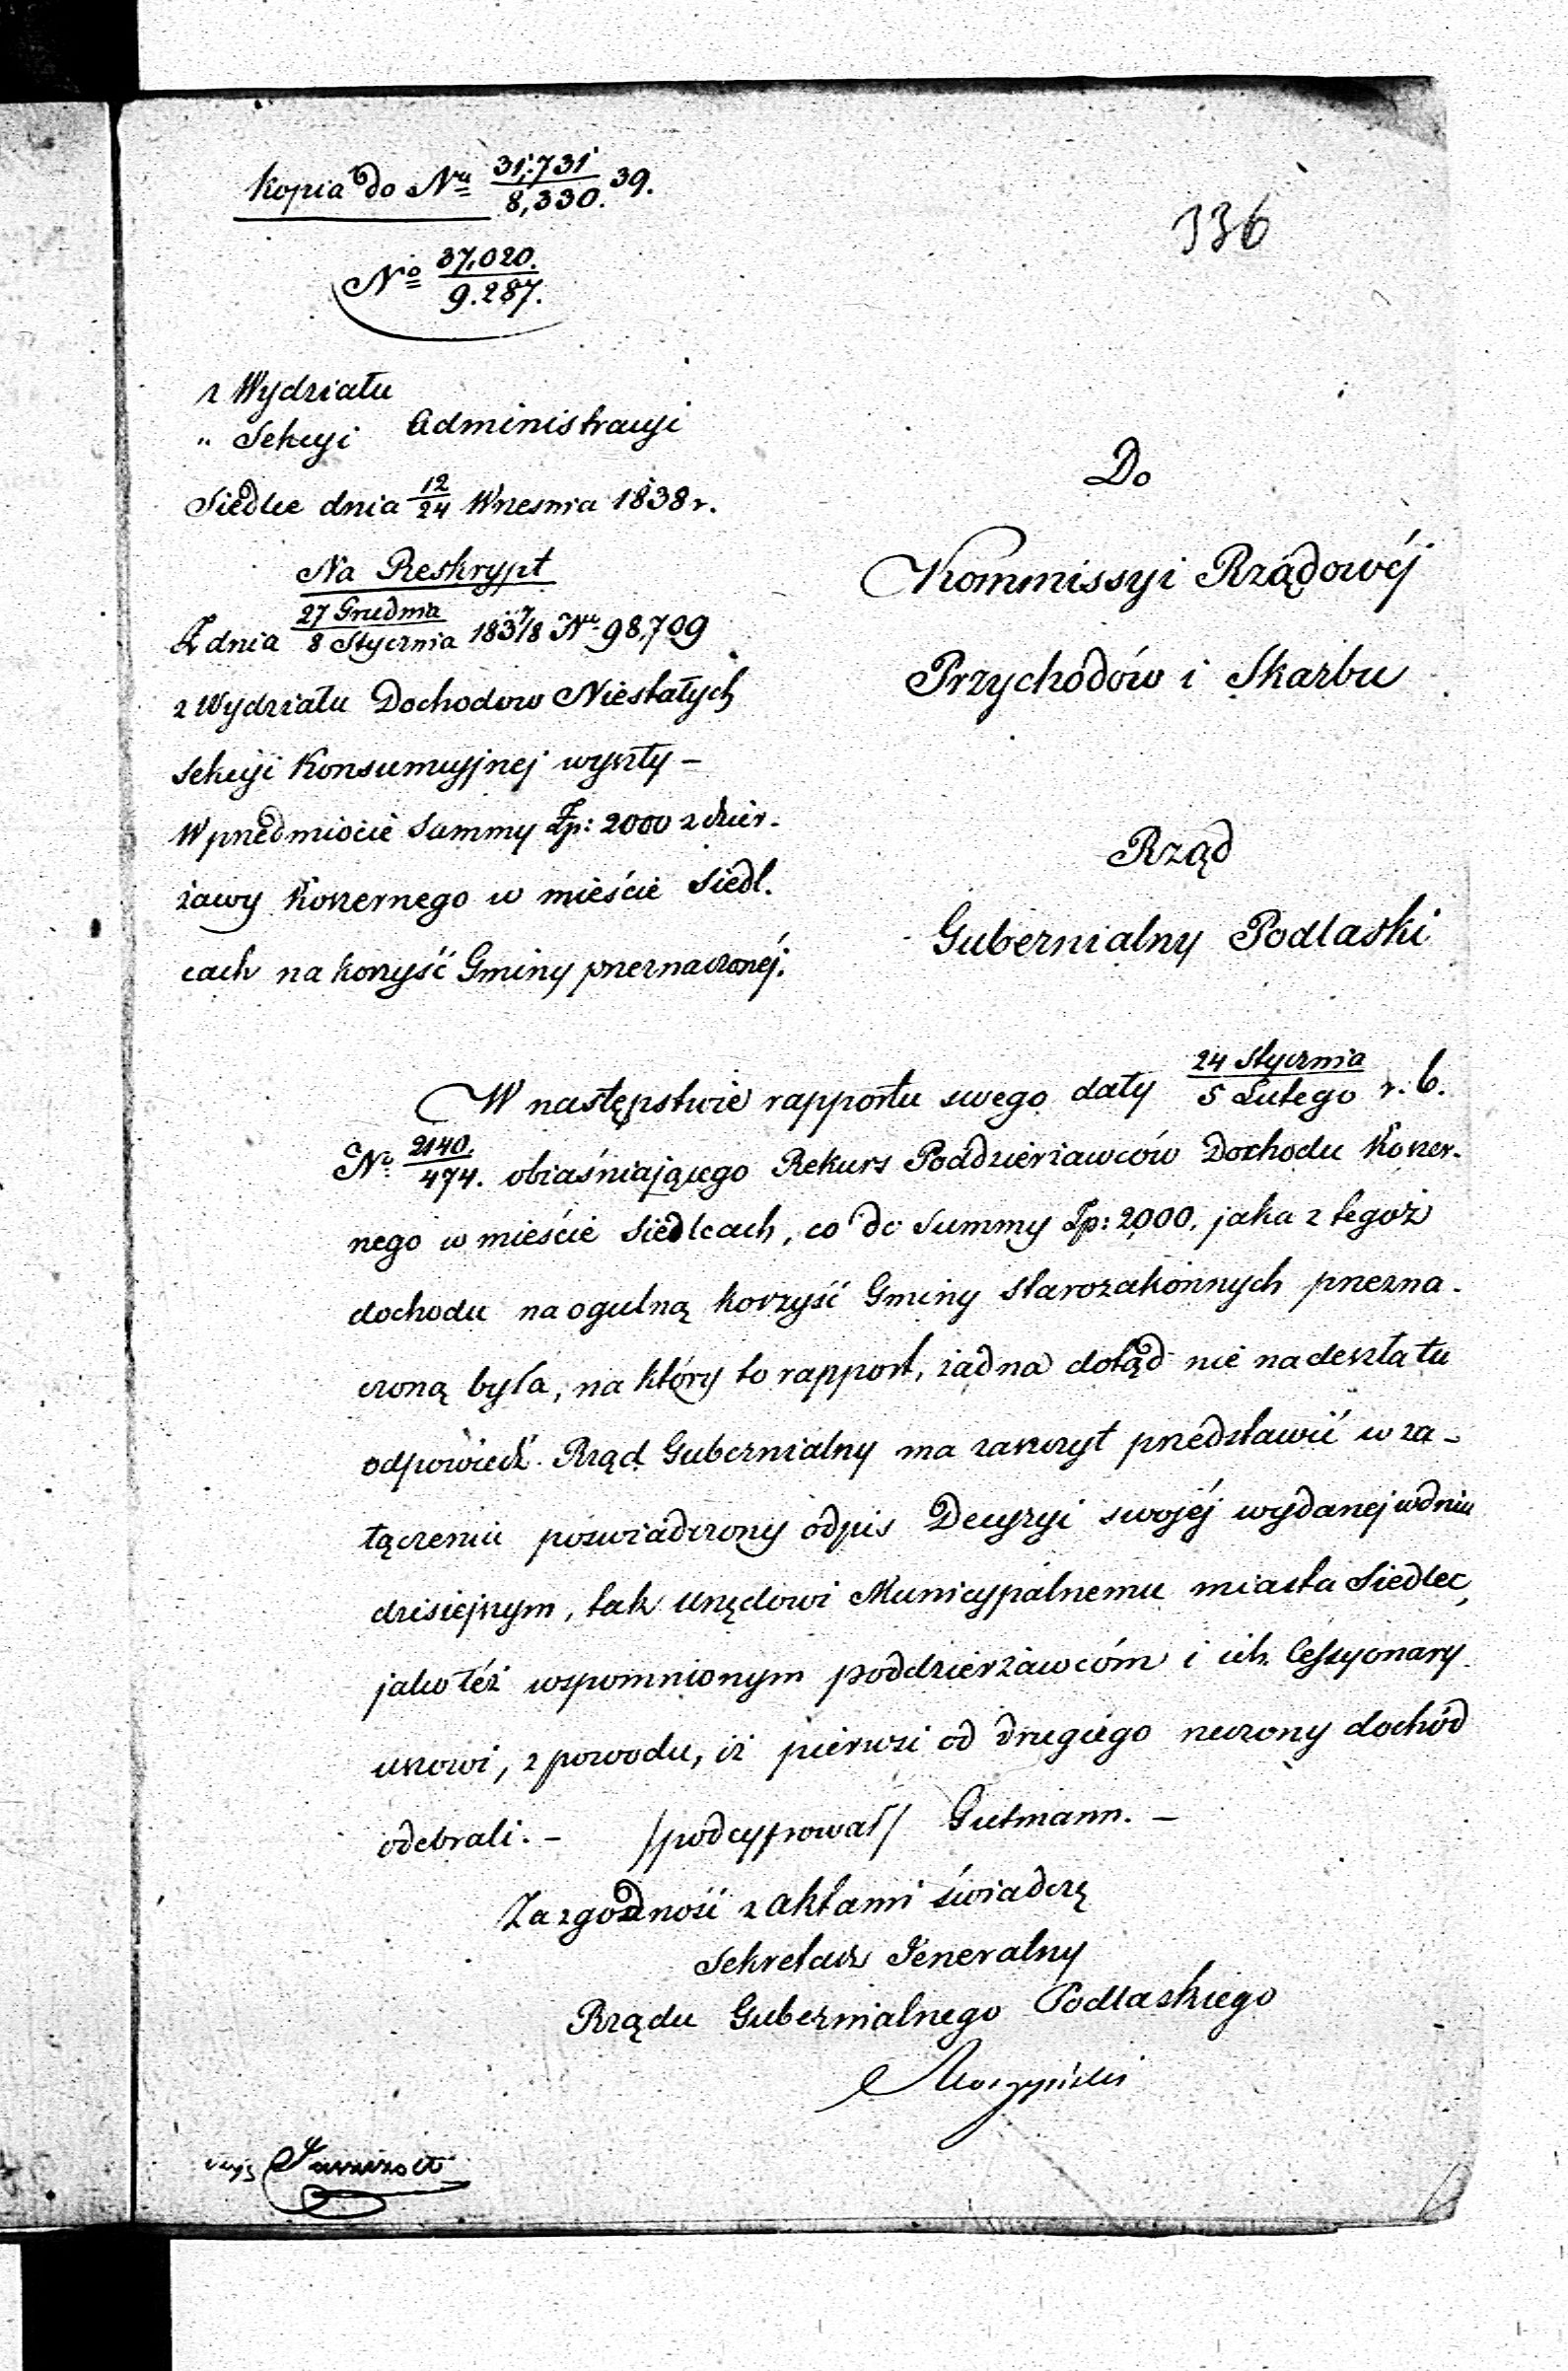 Kopia do Nru 31,731/8,330. 39.
136
No 37,020./9.287.
z Wydziału
" Sekcyi Administracyi
Siedlce dnia 12/24 Wrzesnia 1838 r.
Na Reskrypt
Z dnia 27 Grudnia/8 Stycznia 1837/8 Nr 98,709
z Wydziału Dochodow Niestałych
Sekcyi Konsumcyjnej wyszły –
W przedmiocie Summy Zp: 2000 z dzier-
żawy Koszernego w mieście Siedl-
cach na korzyść Gminy przeznaczonéj.
Do
Kommissyi Rządowéj
Przychodów i Skarbu
Rząd
Gubernialny Podlaski
W następstwie rapportu swego daty 24 Stycznia/5 Lutego r. b.
No 2140./474. obiaśniającego Rekurs Poddzierżawców Dochodu Koszer-
nego w mieście Siedlcach, co do Summy Zp: 2,000. jaka z tegoż
dochodu na ogulną korzyść Gminy Starozakonnych przezna-
czoną była, na który to rapport, żadna dotąd nie nadeszła tu
odpowiedź. Rząd Gubernialny ma zaszczyt przedstawić w za-
łączeniu poświadczony odpis Decyzyi swojéj wydanej w dniu
dzisiejszym, tak Urzędowi Municypalnemu miasta Siedlec,
jako téż wspomnionym poddzierżawcóm i ich Cessyonary-
uszowi, z powodu, iż pierwsi od drugiego rzeczony dochód
odebrali. – /podcyfrował/ Gutmann. –
Za zgodność z aktami świadczę
Sekretarz Jeneralny
Rządu Gubernialnego Podlaskiego